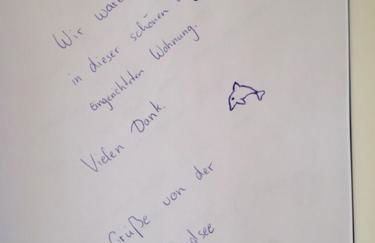 Wir
in dieser schönen
eingerichteten Wohnung.
Vielen Dank.
Grüße von der